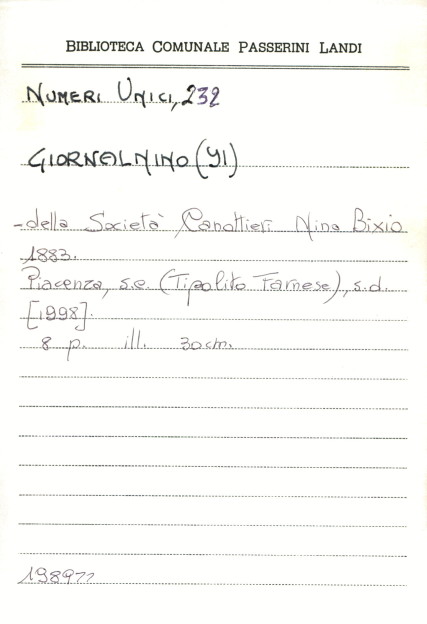 BIBLIOTECA COMUNALE PASSERINI LANDI
NUMERI UNICI, 232
GIORNALNINO (YI)
-della Società Canottieri Nino Bixio
1883.
Piacenza, s.e. (Tipolito Farnese), s.d.
[1998].
8 p. ill. 30cm.